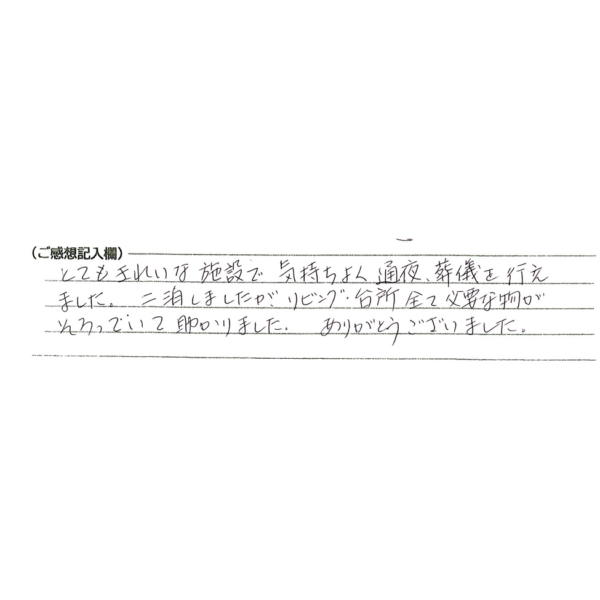 (ご感想記入欄)
とてもきれいな施設で 気持ちよく通夜、葬儀を行え
ました。 二泊しましたが リビング・台所全て必要な物が
そろっていて助かりました. ありがとうございました。